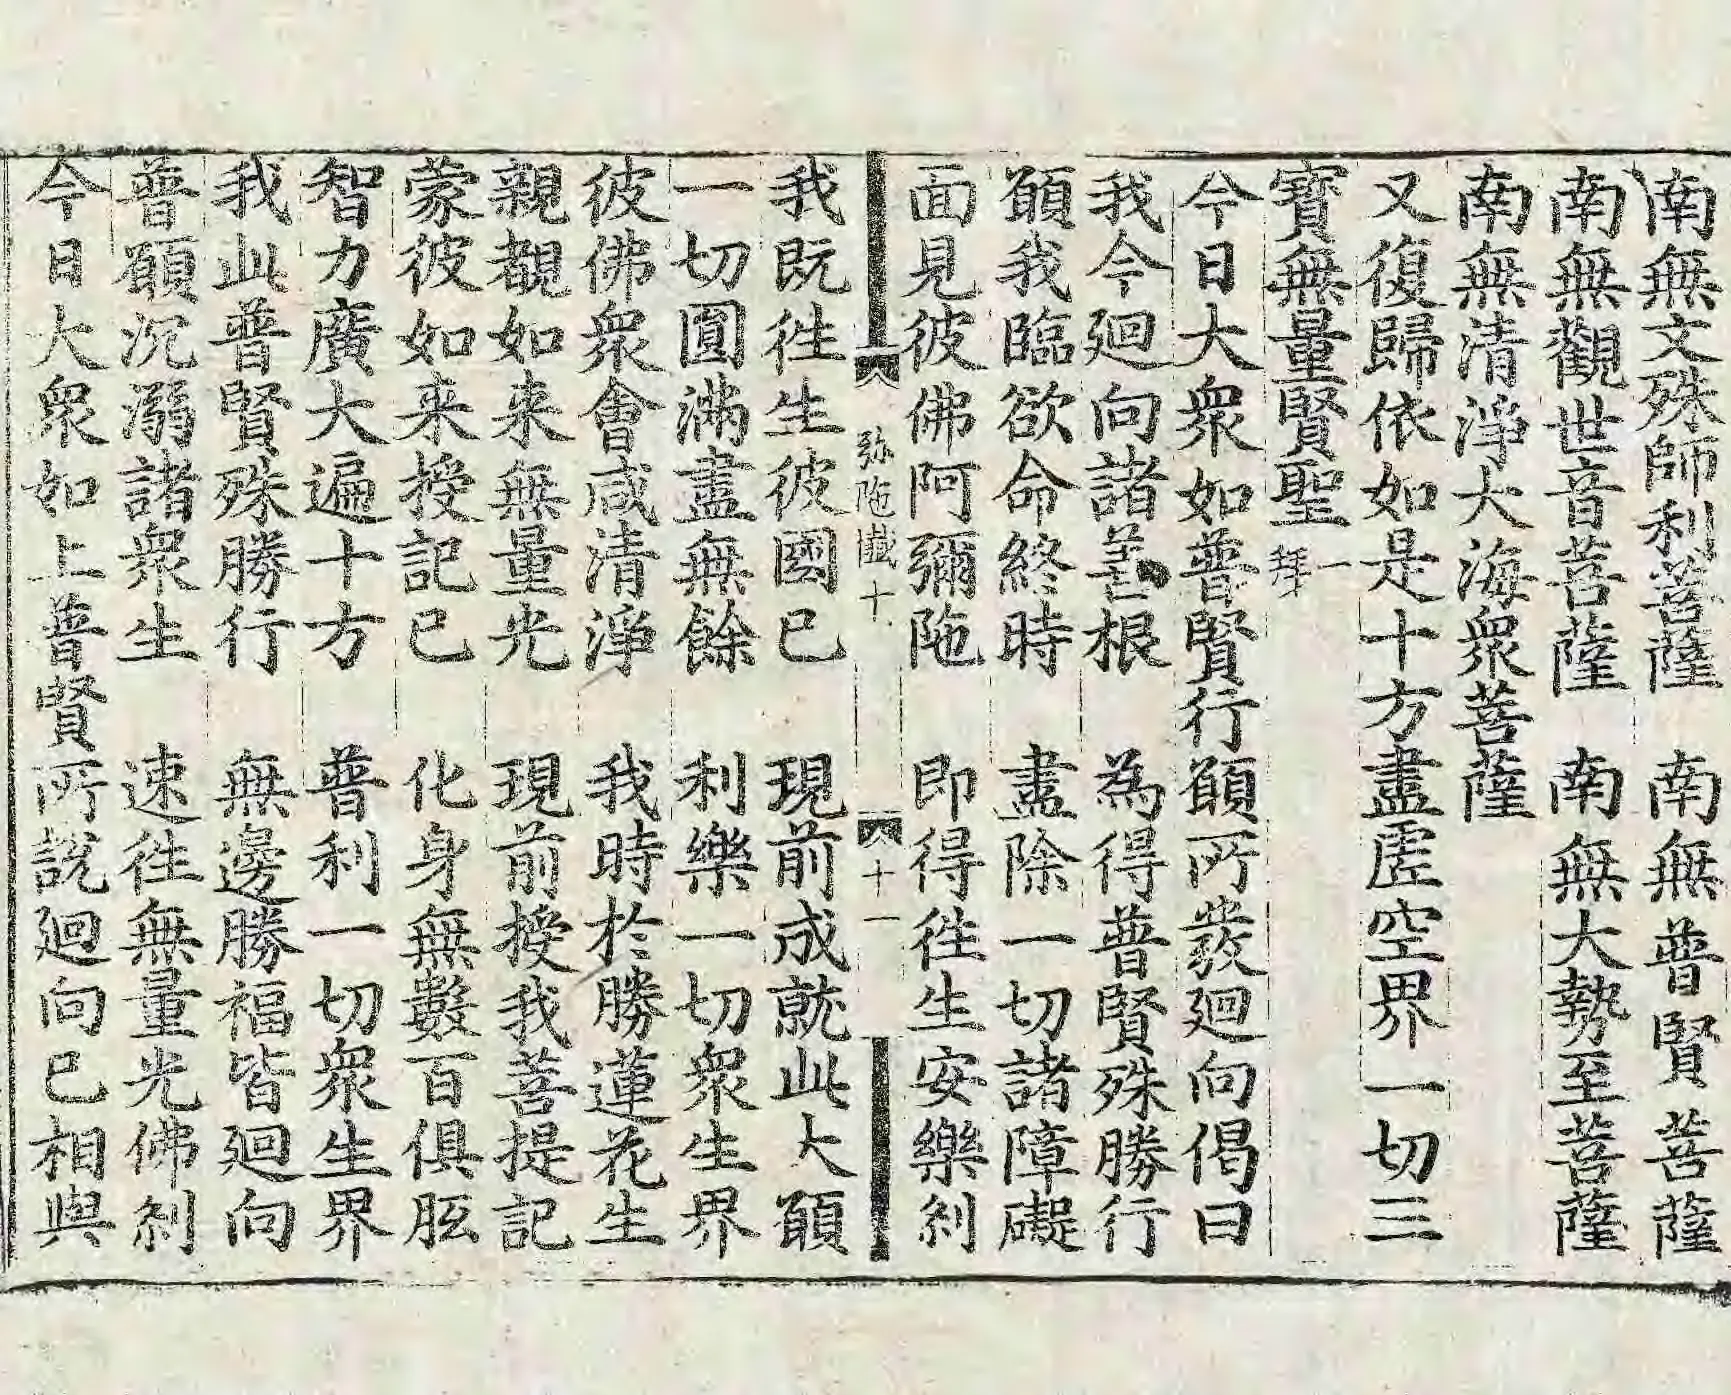 南無文殊師利菩薩　南無普賢菩薩
南無觀世音菩薩　南無大勢至菩薩
南無清淨大海衆菩薩
又復歸依如是十方盡虛空界一切三
寶無量賢聖 一拜
今日大衆如普賢行願所發廻向偈曰
我今廻向諸善根　為得普賢殊勝行
願我臨欲命終時　盡除一切諸障礙
面見彼佛阿彌陁　即得徃生安樂剎
弥陁懺十　十一
我既徃生彼國已　現前成就此大願
一切圓滿盡無餘　利樂一切衆生界
彼佛衆會咸清淨　我時於勝蓮花生
親覩如来無量光　現前授我菩提記
蒙彼如来授記已　化身無數百俱胝
智力廣大遍十方　普利一切衆生界
我此普賢殊勝行　無邊勝福皆廻向
普願沉溺諸衆生　速徃無量光佛剎
今日大衆如上普賢所說廻向已相與